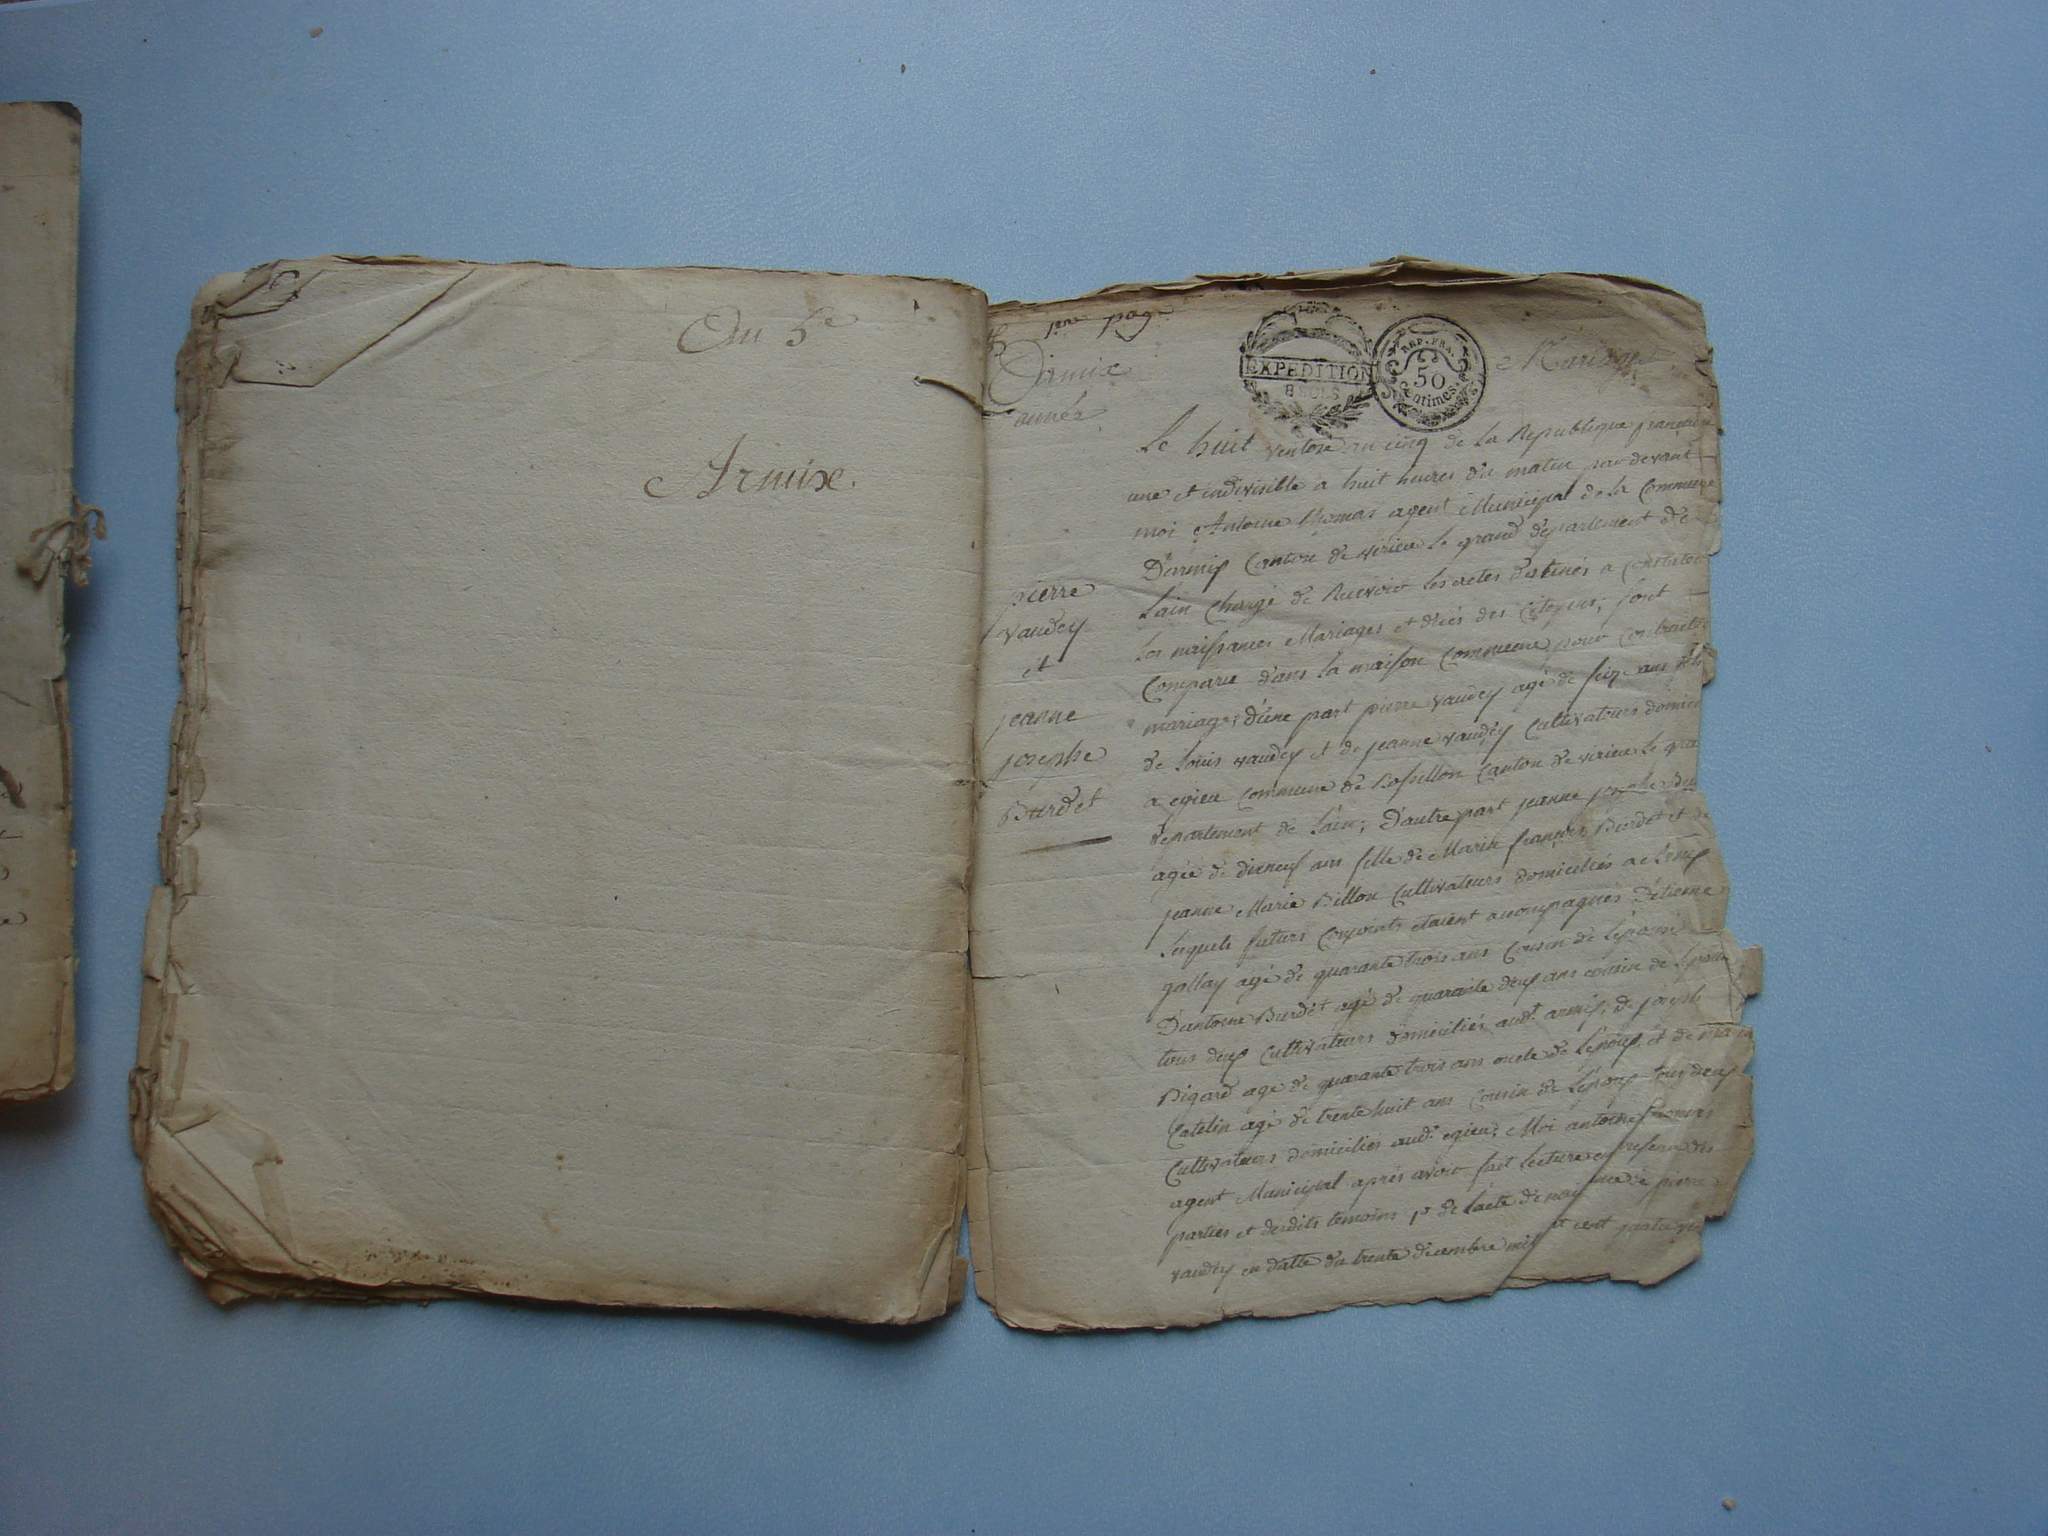 An 5e
Armix.
1ere page
Darmix
année
EXPEDITION
8 SOLS
REP. FRA.
50
centimes
Mariages
pierre
vaudey
et
jeanne
josephe
Burdet
Le huit ventose an cinq de La Republique françai
une et indivisible a huit heures du matin par devant
moi Antoine thomas agent Municipal de la Commune
D'armix Canton de virieu Le grand departement de
Lain Chargé de Recevoir les actes destinés a constater
Les naissances Mariages et décés des Citoyens, sont
Comparu dans la maison Commune pour contracter
mariage; d'une part pierre vaudey agé de seize ans fils
de Louis vaudey et de jeanne vaudey Cultivateurs domici
a egieu Commune de Rossillon Canton de virieu le gra
departement de Lain; D'autre part jeanne josephe Bu
agée de dixneuf ans fille de Marin françois Burdet et de
jeanne Marie Billon Cultivateurs domiciliés a Armix
Lesquels futurs Conjoints etaient accompagnés D'etienne
gallay agé de quarante trois ans Cousin de L'épouse
D'antoine Burdet agé de quarante deux ans cousin de L'epouse
tous deux Cultivateurs domiciliés aud. armix, de joseph
Bigard age de quarante trois ans oncle de L'epoux, et de
Catelin agé de trente huit ans Cousin de L'epoux tous deux
Cultivateurs domiciliés aud. egieu; Moi antoine thomas
agent Municipal aprés avoir fait Lecture en presence des
parties et desdits temoins 1° de L'acte de nai nce de pierre
vaudey en datte du trente decembre mil pt cent quatre vin